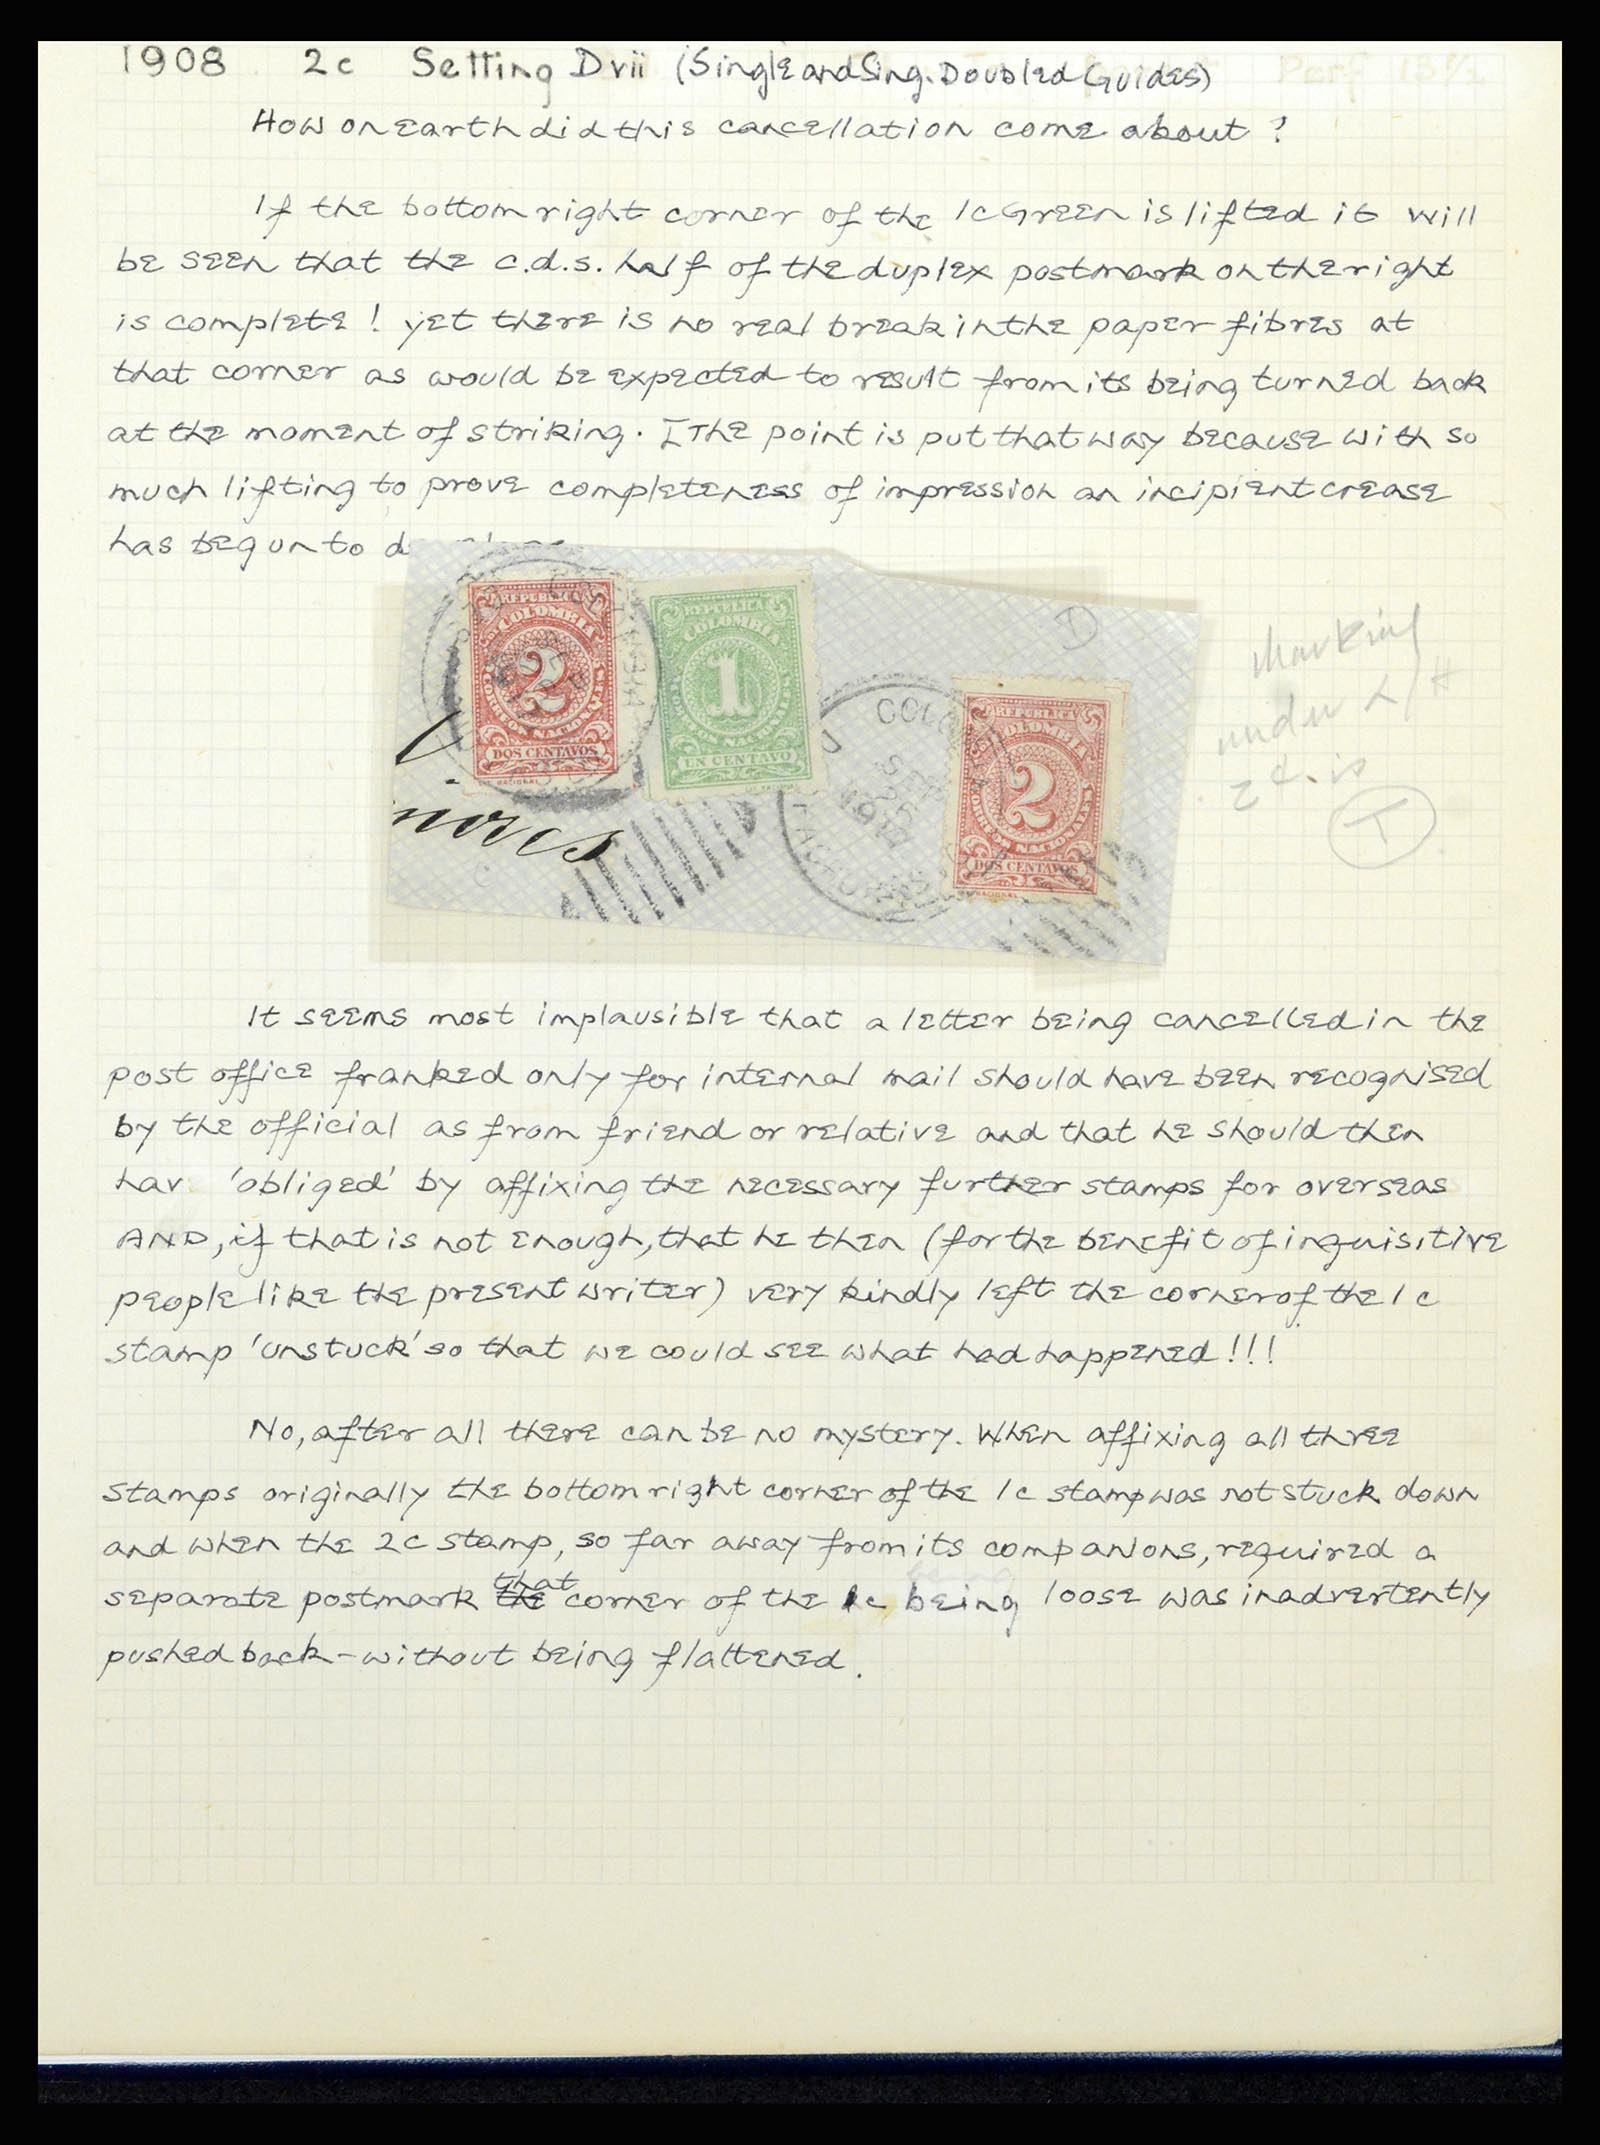 1908 2c Setting Dvii (Single and Sing. Doubled Guides) Perf 13½
How on earth did this cancellation come about?
If the bottom right corner of the 1c Green is lifted it will
be seen that the c.d.s. half of the duplex postmark on the right
is complete! yet there is no real break in the paper fibres at
that corner as would be expected to result from its being turned back
at the moment of striking. [The point is put that way because with so
much lifting to prove completeness of impression an incipient crease
has begun to
D
REPUBLICA
DE COLOMBIA
2
CORREOS NACIONALES
DOS CENTAVOS
NACIONAL
REPUBLICA
DE COLOMBIA
1
CORREOS NACIONALES
UN CENTAVO
COLO
SEP
26
REPUBLICA
DE COLOMBIA
2
CORREOS NACIONALES
DOS CENTAVOS
NACIONAL
Marking
under L/H
2c. is
T
It seems most implausible that a letter being cancelled in the
post office franked only for internal mail should have been recognised
by the official as from friend or relative and that he should then
hav 'obliged' by affixing the necessary further stamps for overseas
AND, if that is not enough, that he then (for the benefit of inquisitive
people like the present writer) very kindly left the corner of the 1c
stamp 'unstuck' so that we could see what had happened!!!
No, after all there can be no mystery. When affixing all three
stamps originally the bottom right corner of the 1c stamp was not stuck down
and when the 2c stamp, so far away from its companions, required a
separate postmark the that corner of the 1c being loose was inadvertently
pushed back - without being flattened.